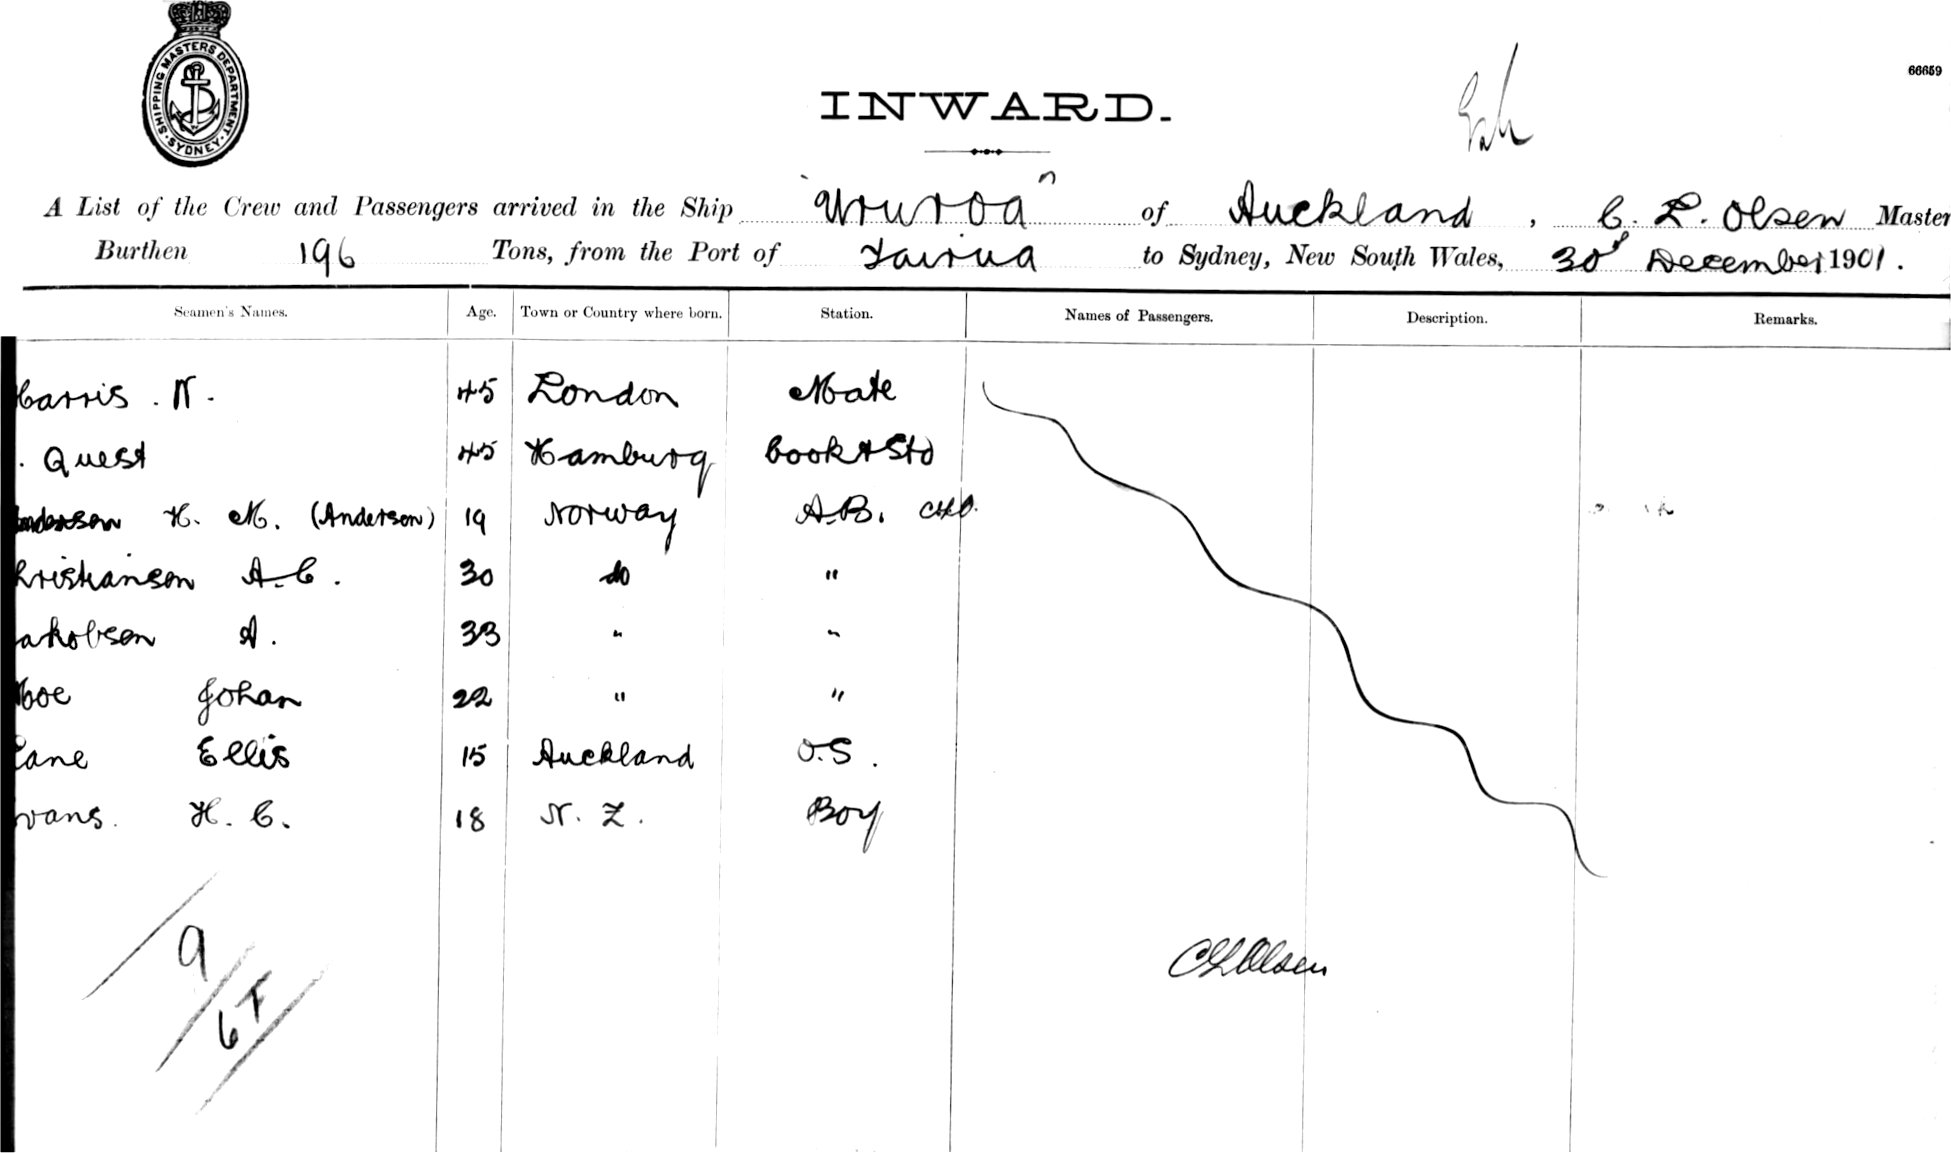 SHIPPING MASTERS DEPARTMENT. SYDNEY.
66659
INWARD.
A List of the Crew and Passengers arrived in the Ship "Ururoa" of Auckland, C. L. Olsen Master
Burthen 196 Tons, from the Port of Tairua to Sydney, New South Wales, 30th December 1901.
Seamen's Names. Age. Town or Country where born. Station. Names of Passengers. Description. Remarks.
Harris . N. 45 London Mate
. Quest 45 Hamburg Cook & Std
H. M. (Anderson) 19 Norway A.B.
hristianson A.C. 30 do "
akobsen A. 33 " "
Moe Johan 22 " "
Lane Ellis 15 Auckland O.S.
vans. H. C. 18 N. Z. Boy
C L Olsen
9
6 F